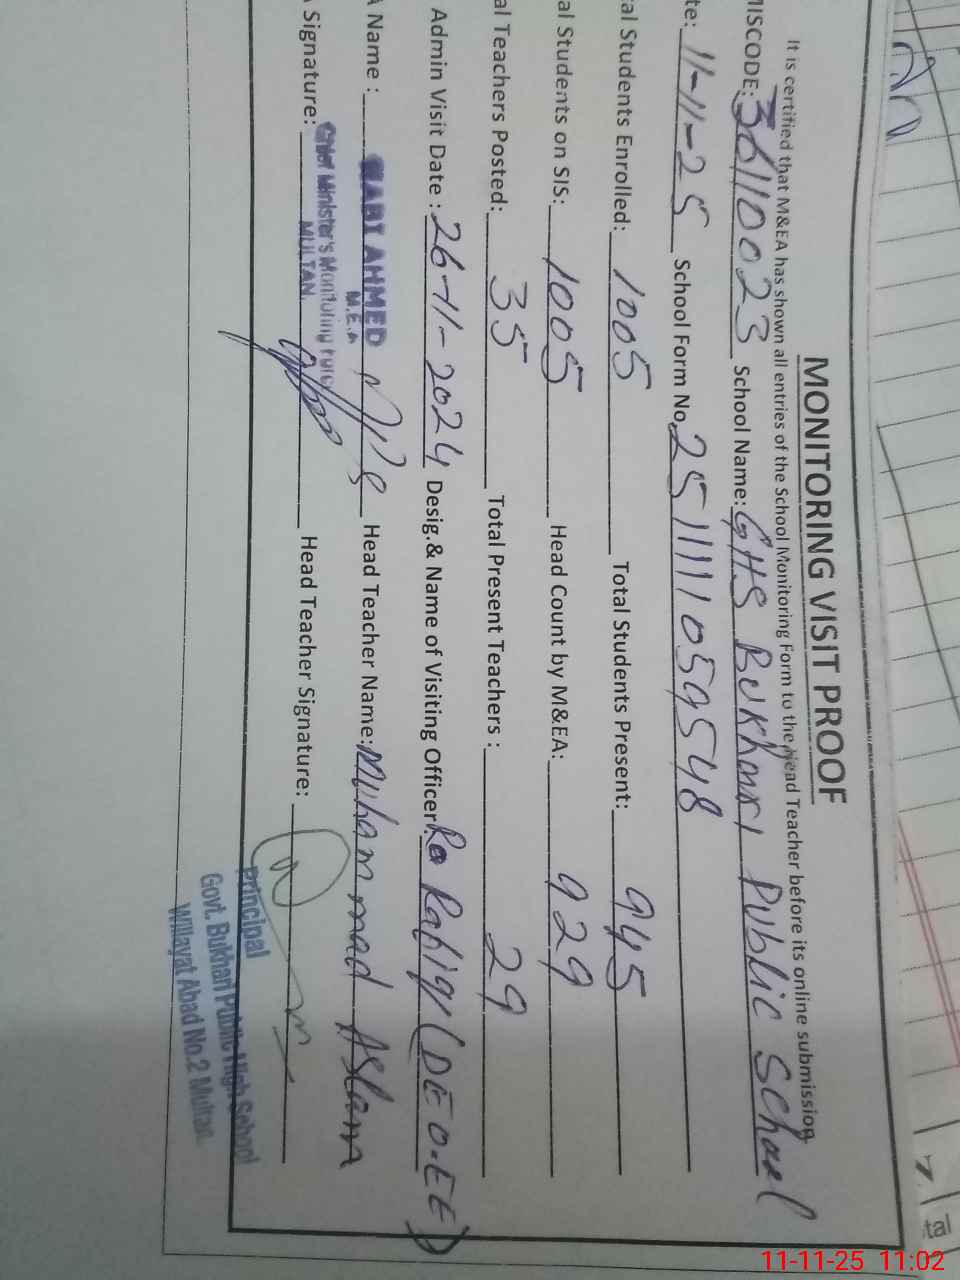 MONITORING VISIT PROOF
It is certified that M&EA has shown all entries of the School Monitoring Form to the Head Teacher before its online submission
MISCODE: 36110023 School Name: GHS Bukhari Public School
te: 11-11-25 School Form No. 251111059548
tal Students Enrolled: 1005 Total Students Present: 945
al Students on SIS: 1005 Head Count by M&EA: 929
al Teachers Posted: 35 Total Present Teachers : 29
Admin Visit Date : 26-11-2024 Desig.& Name of Visiting Officer: (DEO.EE)
A Name : AHMED Head Teacher Name: Muhammad Aslam
M.E.A
A Signature: Head Teacher Signature:
Chief Minister's Monitoring Force
MULTAN.
Principal
Govt. Bukhari Public High School
Willayat Abad No.2 Multan
7
tal
11-11-25 11:02